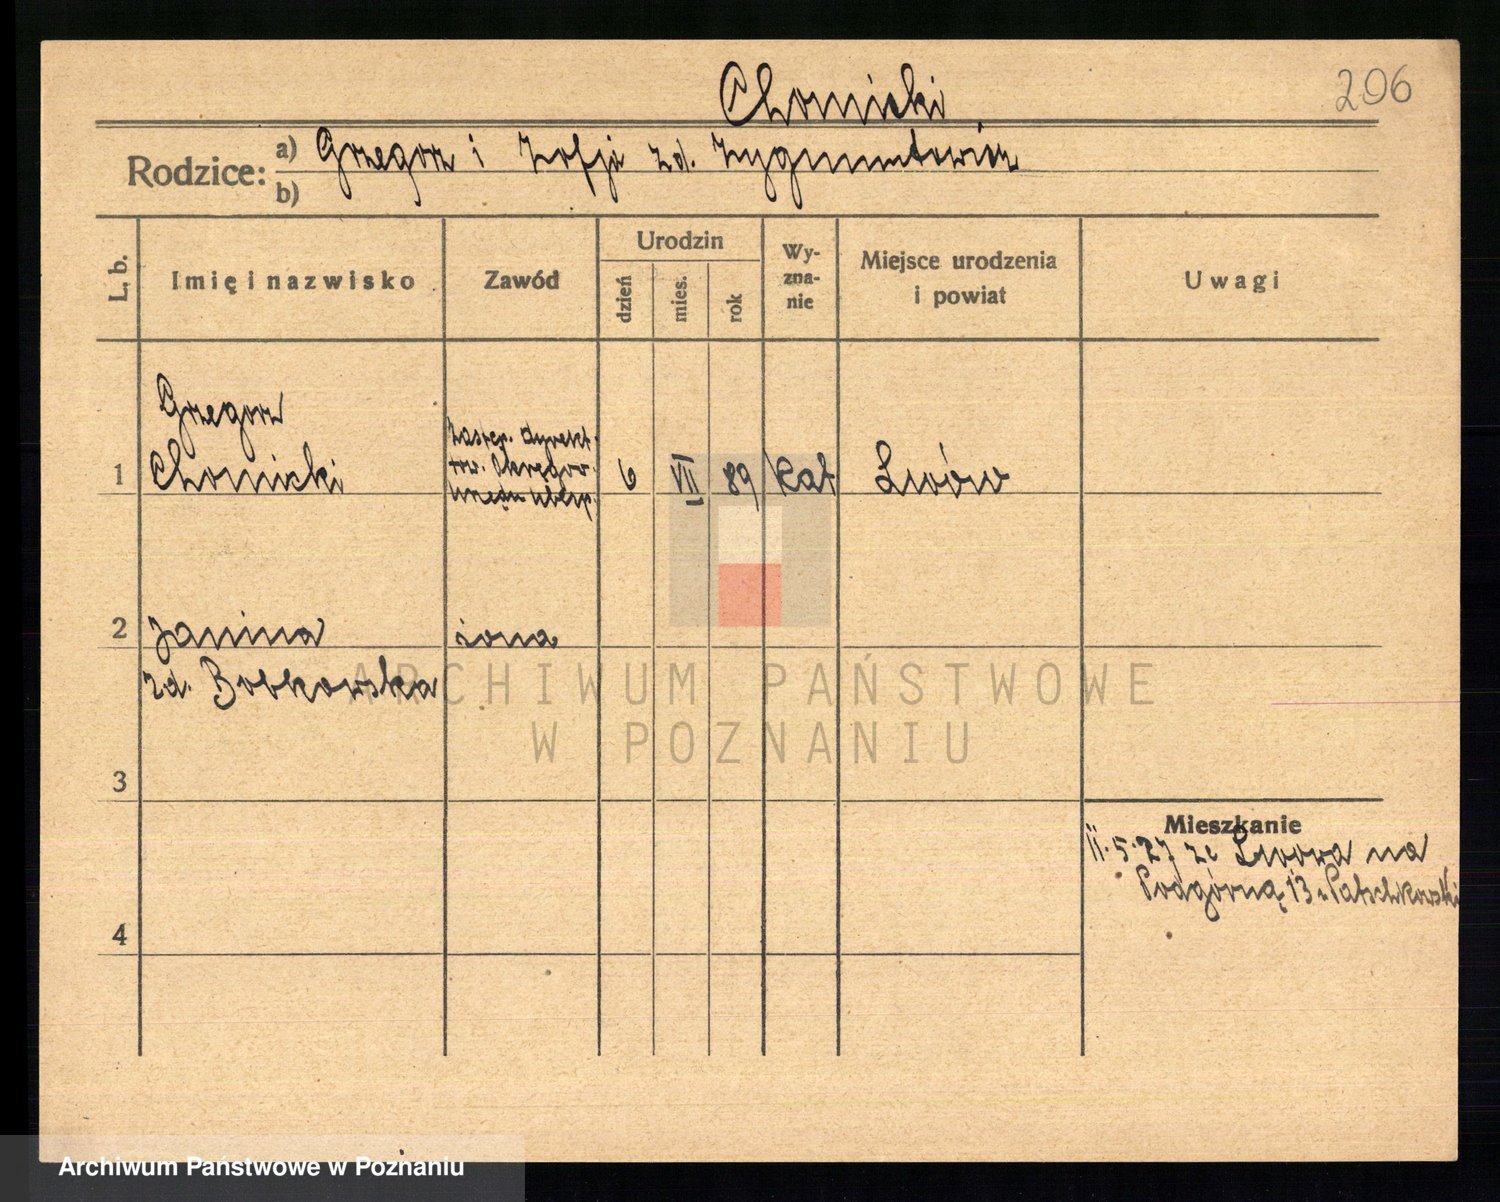 Chomicki
206
Rodzice: a) Grzegorz i Zofja zd. Zygmuntowicz
b)
L. b.
Imię i nazwisko
Zawód
Urodzin
dzień
mies.
rok
Wy-
zna-
nie
Miejsce urodzenia
i powiat
Uwagi
Grzegorz
1 Chomicki
Zastęp. dyrekt.
Okręgow.
6 VII 89 kat Lwów
2 Janina żona
zd. Bobkowska
3
4
Mieszkanie
11.5.27 ze Lwowa na
Podgórną 13
ARCHIWUM PAŃSTWOWE
W POZNANIU
Archiwum Państwowe w Poznaniu